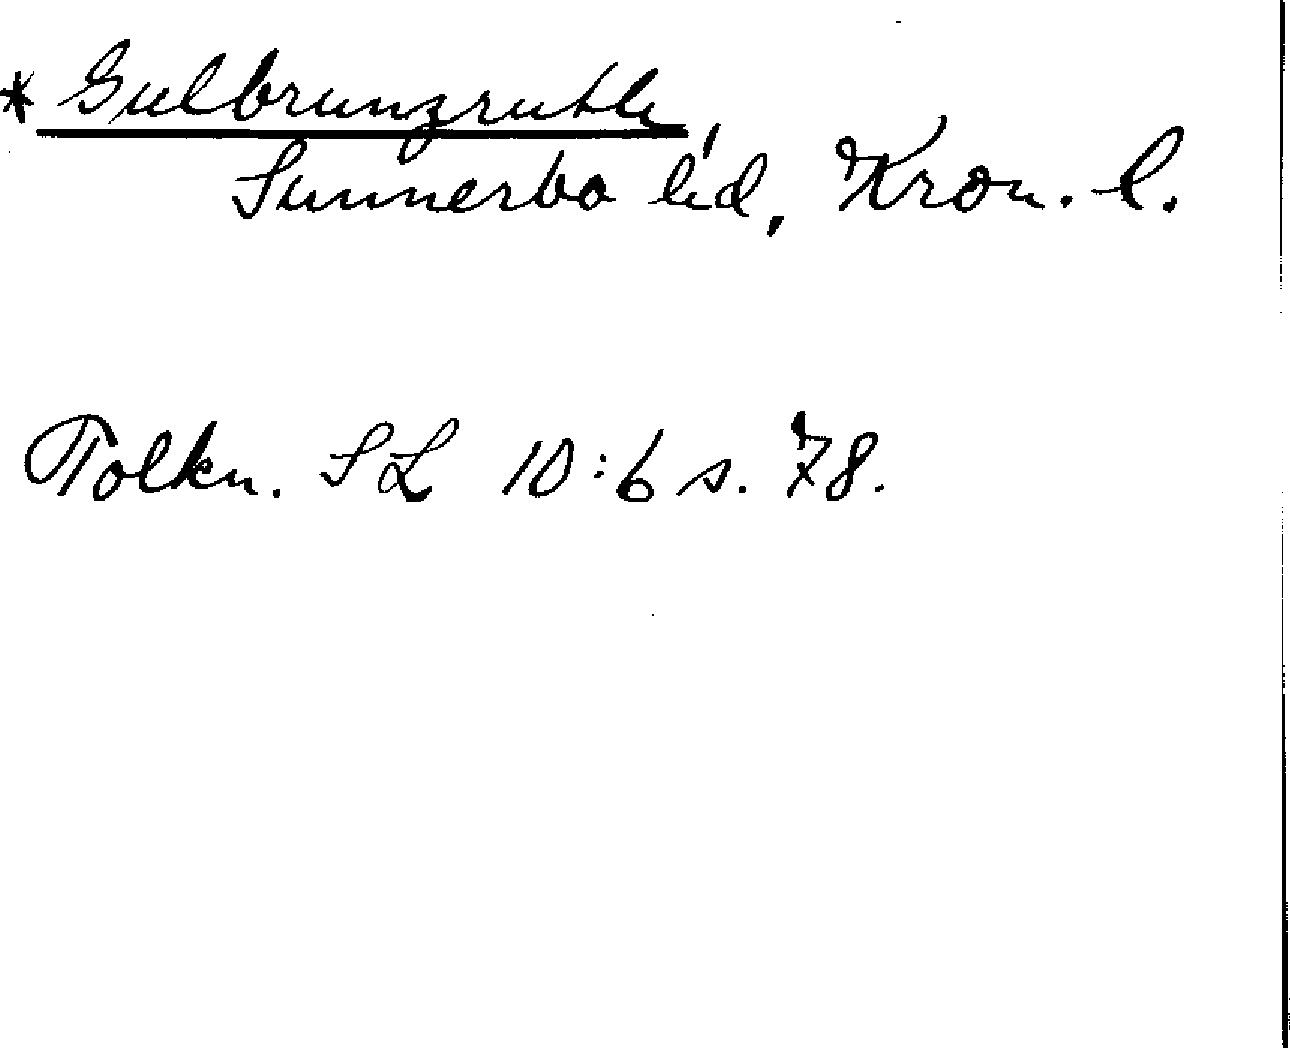 * Gulbrunzrutle,
Sunnerbo hd, Kron. l.
Tolkn. SL 10:6 s. 78.